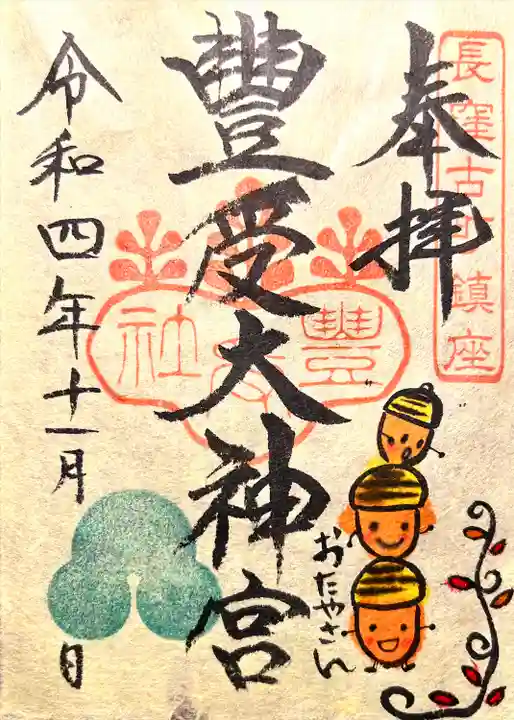 長窪古町鎮座
奉拝
豊受大神宮
豊受社
おたやさん
令和四年十一月
日